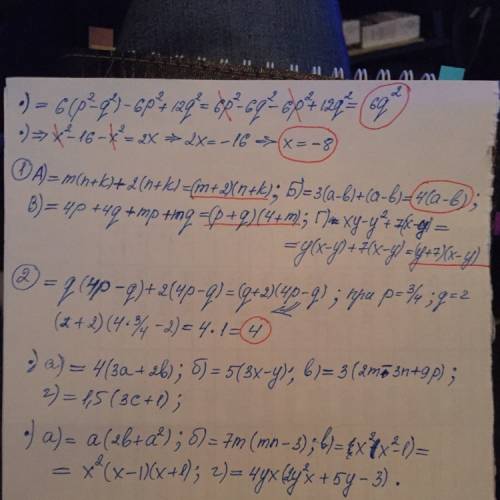 •) = 6(p²-q²)-6p²+12q² = 6p²-6q²-6p²+12q² = 6q²
•) ⇒ x²-16-x²=2x ⇒ 2x=-16 ⇒ x=-8
① А)=m(n+k)+2(n+k)=(m+2)(n+k); Б)=3(a-b)+(a-b)=4(a-b);
В)=4p+4q+mp+mq=(p+q)(4+m); Г)=xy-y²+7(x-y)=
=y(x-y)+7(x-y)=(y+7)(x-y)
② =q(4p-q)+2(4p-q)=(q+2)(4p-q); при p=3/4; q=2
(2+2)(4·3/4-2)=4·1=4
•) а)=4(3a+2b); б)=5(3x-y); в)=3(2m-3n+9p);
г)=1,5(3c+1);
•) а)=a(2b+a²); б)=7m(mn-3); в)=x²(x²-1)=
=x²(x-1)(x+1); г)=4yx(2y²x+5y-3).